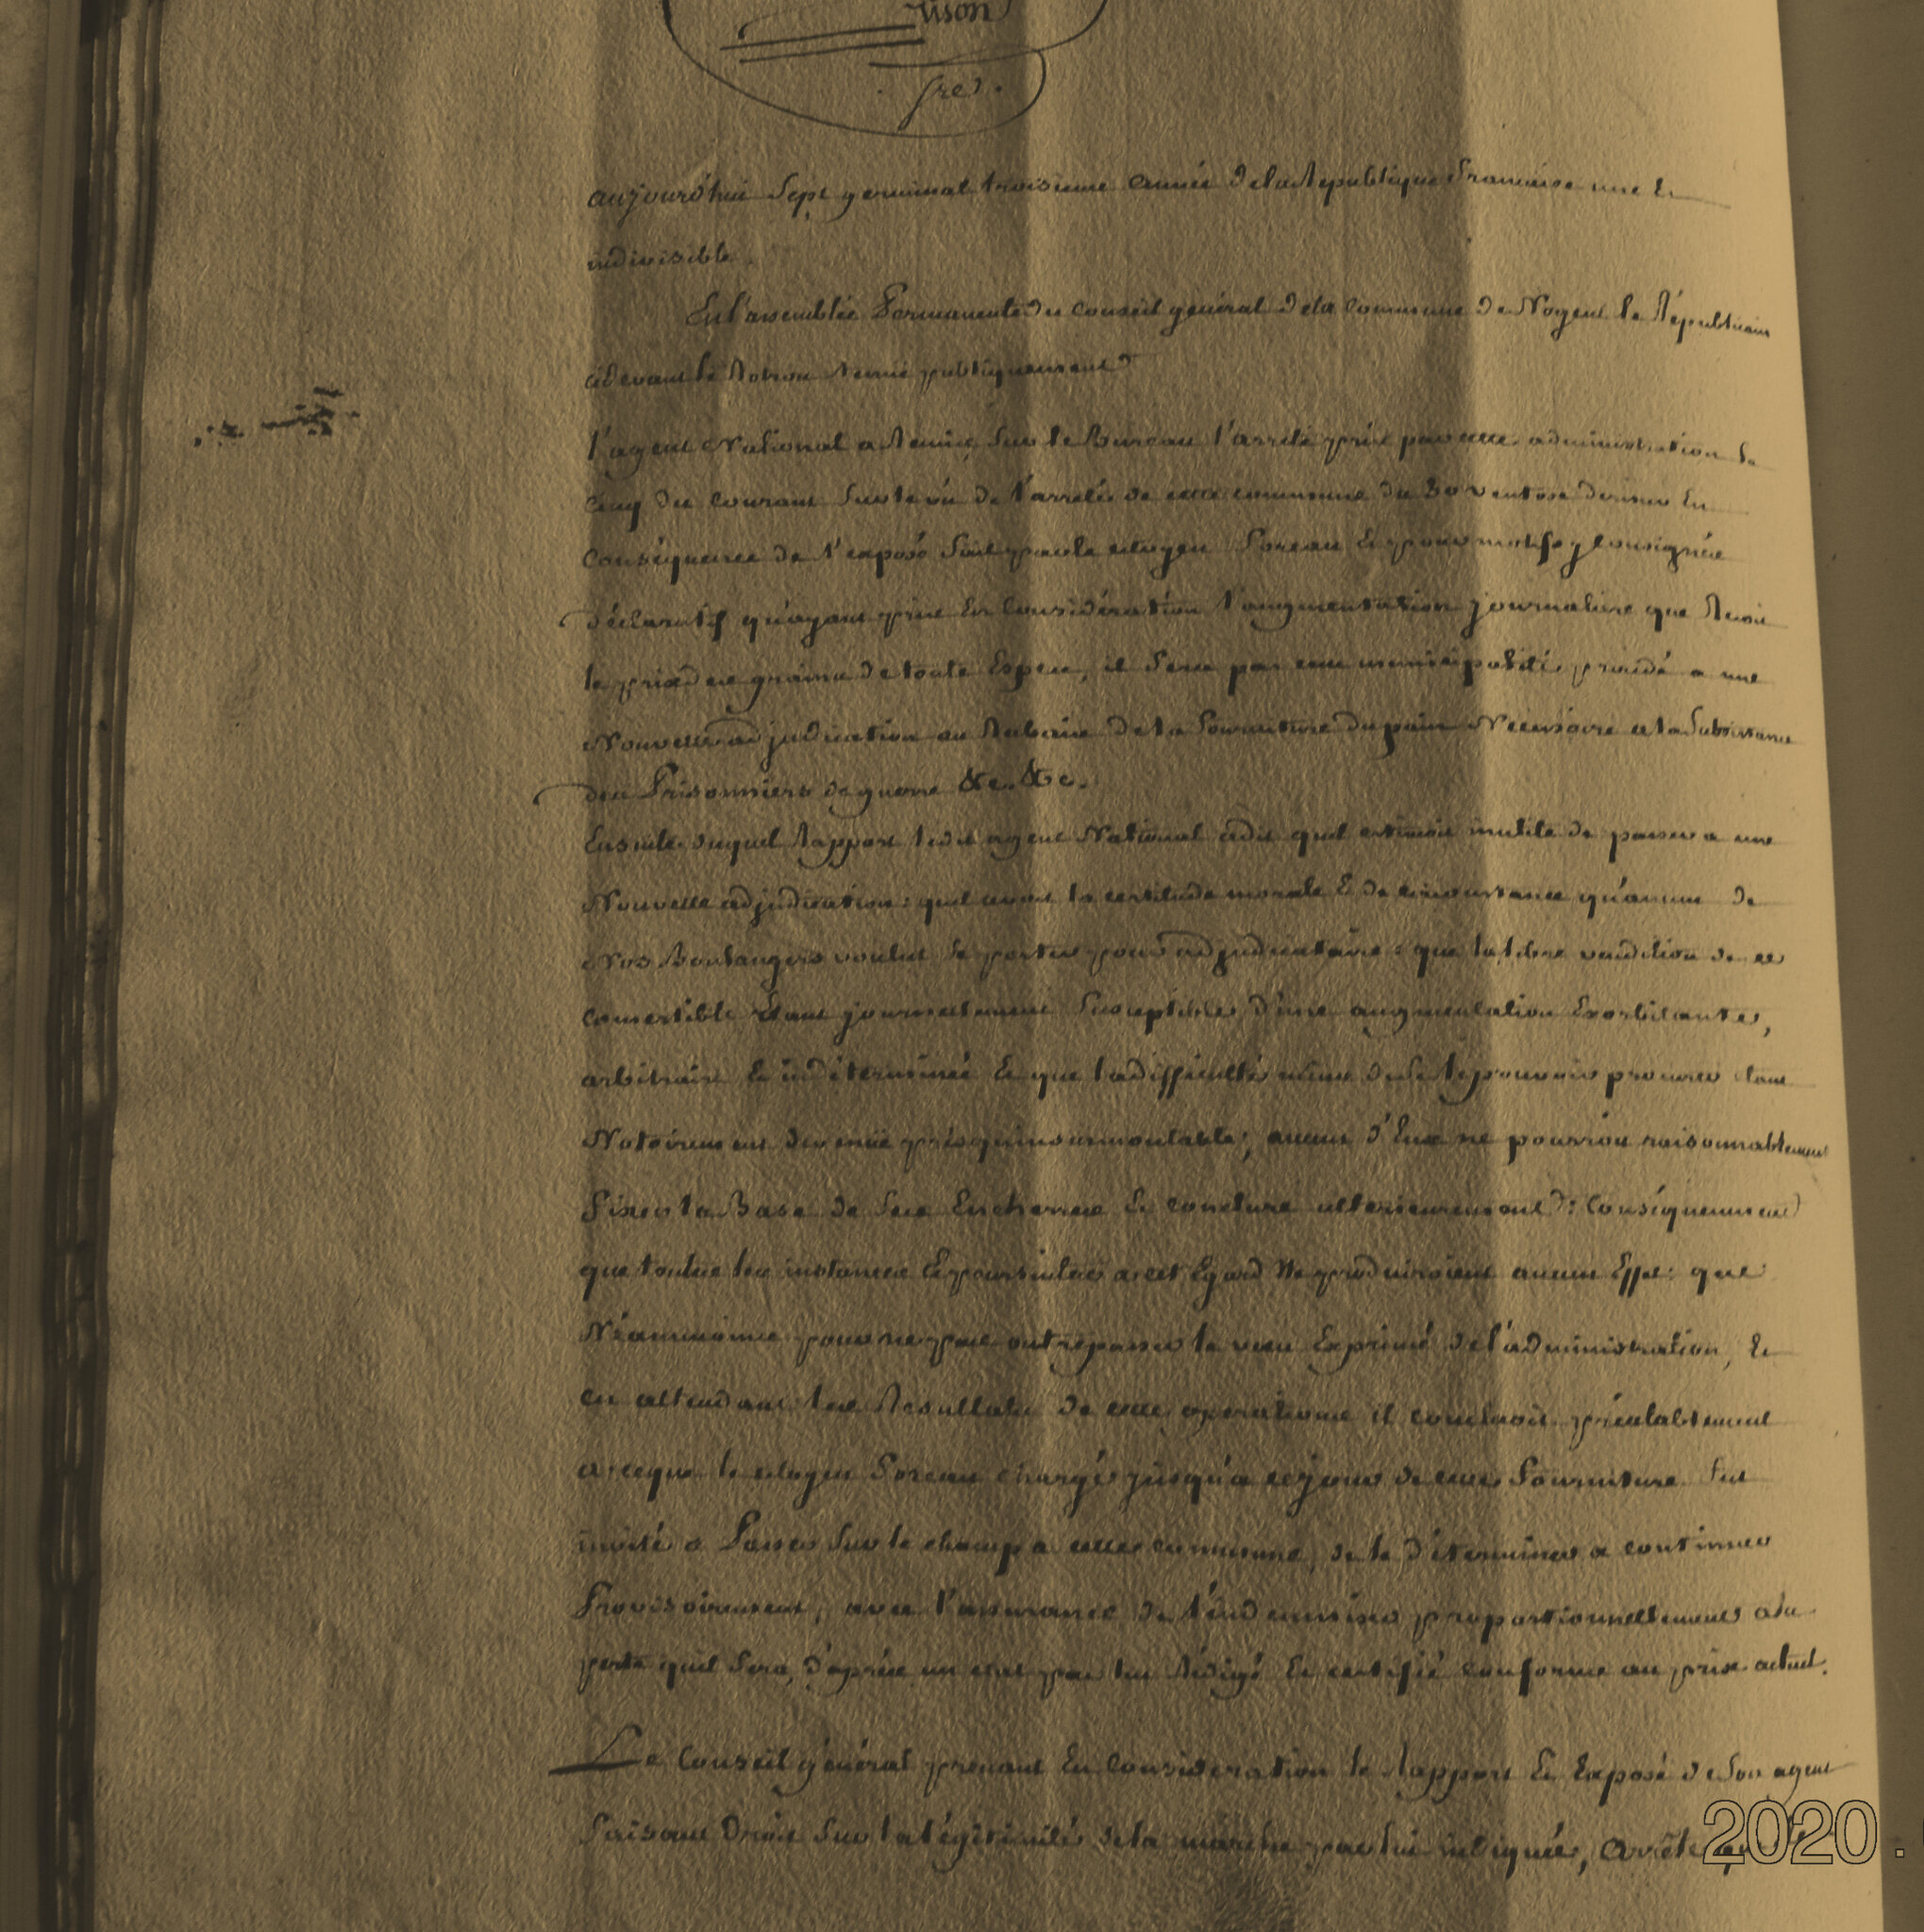 rison
sre.
aujourd'hui Sept germinal troisieme année de la Republique francaise une Et
indivisible.
En l'assemblée Permanente du Conseil général de la Commune de Nogent le Républicain
cidevant le Rotrou tenuë publiquement
l'agent National a Remis Sur le Bureau l'arrêté pris par cette administration le
Cinq du Courant Sur le vû de l'arrêté de cette commune du 30 ventose dernier En
Conséquence de l'exposé fait par le citoyen Soreau Et pour motifs y Consignés
déclaratif qu'ayant pris En Considération l'augmentation journaliere que Recoit
le prix des grains de toute Espece, il Sera par cette municipalité procédé a une
Nouvelle adjudication au Rabais de la fourniture du pain Nécessaire a la Subsistance
des Prisonniers de guerre &c. &c.
Ensuite duquel Rapport ledit agent National a dit quil estimoit inutile de passer a une
Nouvelle adjudication: quil avoit la certitude morale & de circonstance qu'aucun de
Nos Boulangers voulut Se porter pour adjudicataire: que la libre vendition de ce
comestible Etant journellement Susceptible d'une augmentation Exorbitante,
arbitraire Et indéterminée Et que la difficulté même de Se le pouvoir procurer étant
Notoirement devenuë présqu'insurmontable, aucun d'Eux ne pourroit raisonnablement
fixer la Base de Ses Encheres Et conclure ulterieurement: Conséquemment
que toutes les instances Et poursuites a cet Egard Ne produiroient aucun Effet: que
Néanmoins pour ne pas outrepasser le vœu Exprimé de l'administration, Et
en attendant les Resultats de cette operations il concluoit préalablement
a ce que le citoyen Soreau chargé jusqu'a ce jour de cette fourniture fut
invité a Passer Sur le champ a cette commune, de le déterminer a continuer
Provisoirement, avec l'assurance de l'indemniser proportionnellement a la
perte quil fera, d'après un etat par lui Rédigé Et certifié conforme au prix actuel.
Le Conseil général prenant En Consideration le Rapport Et Exposé de Son agent
faisant Droit Sur la légitimité de la marche par lui indiquée, arrête
2020.